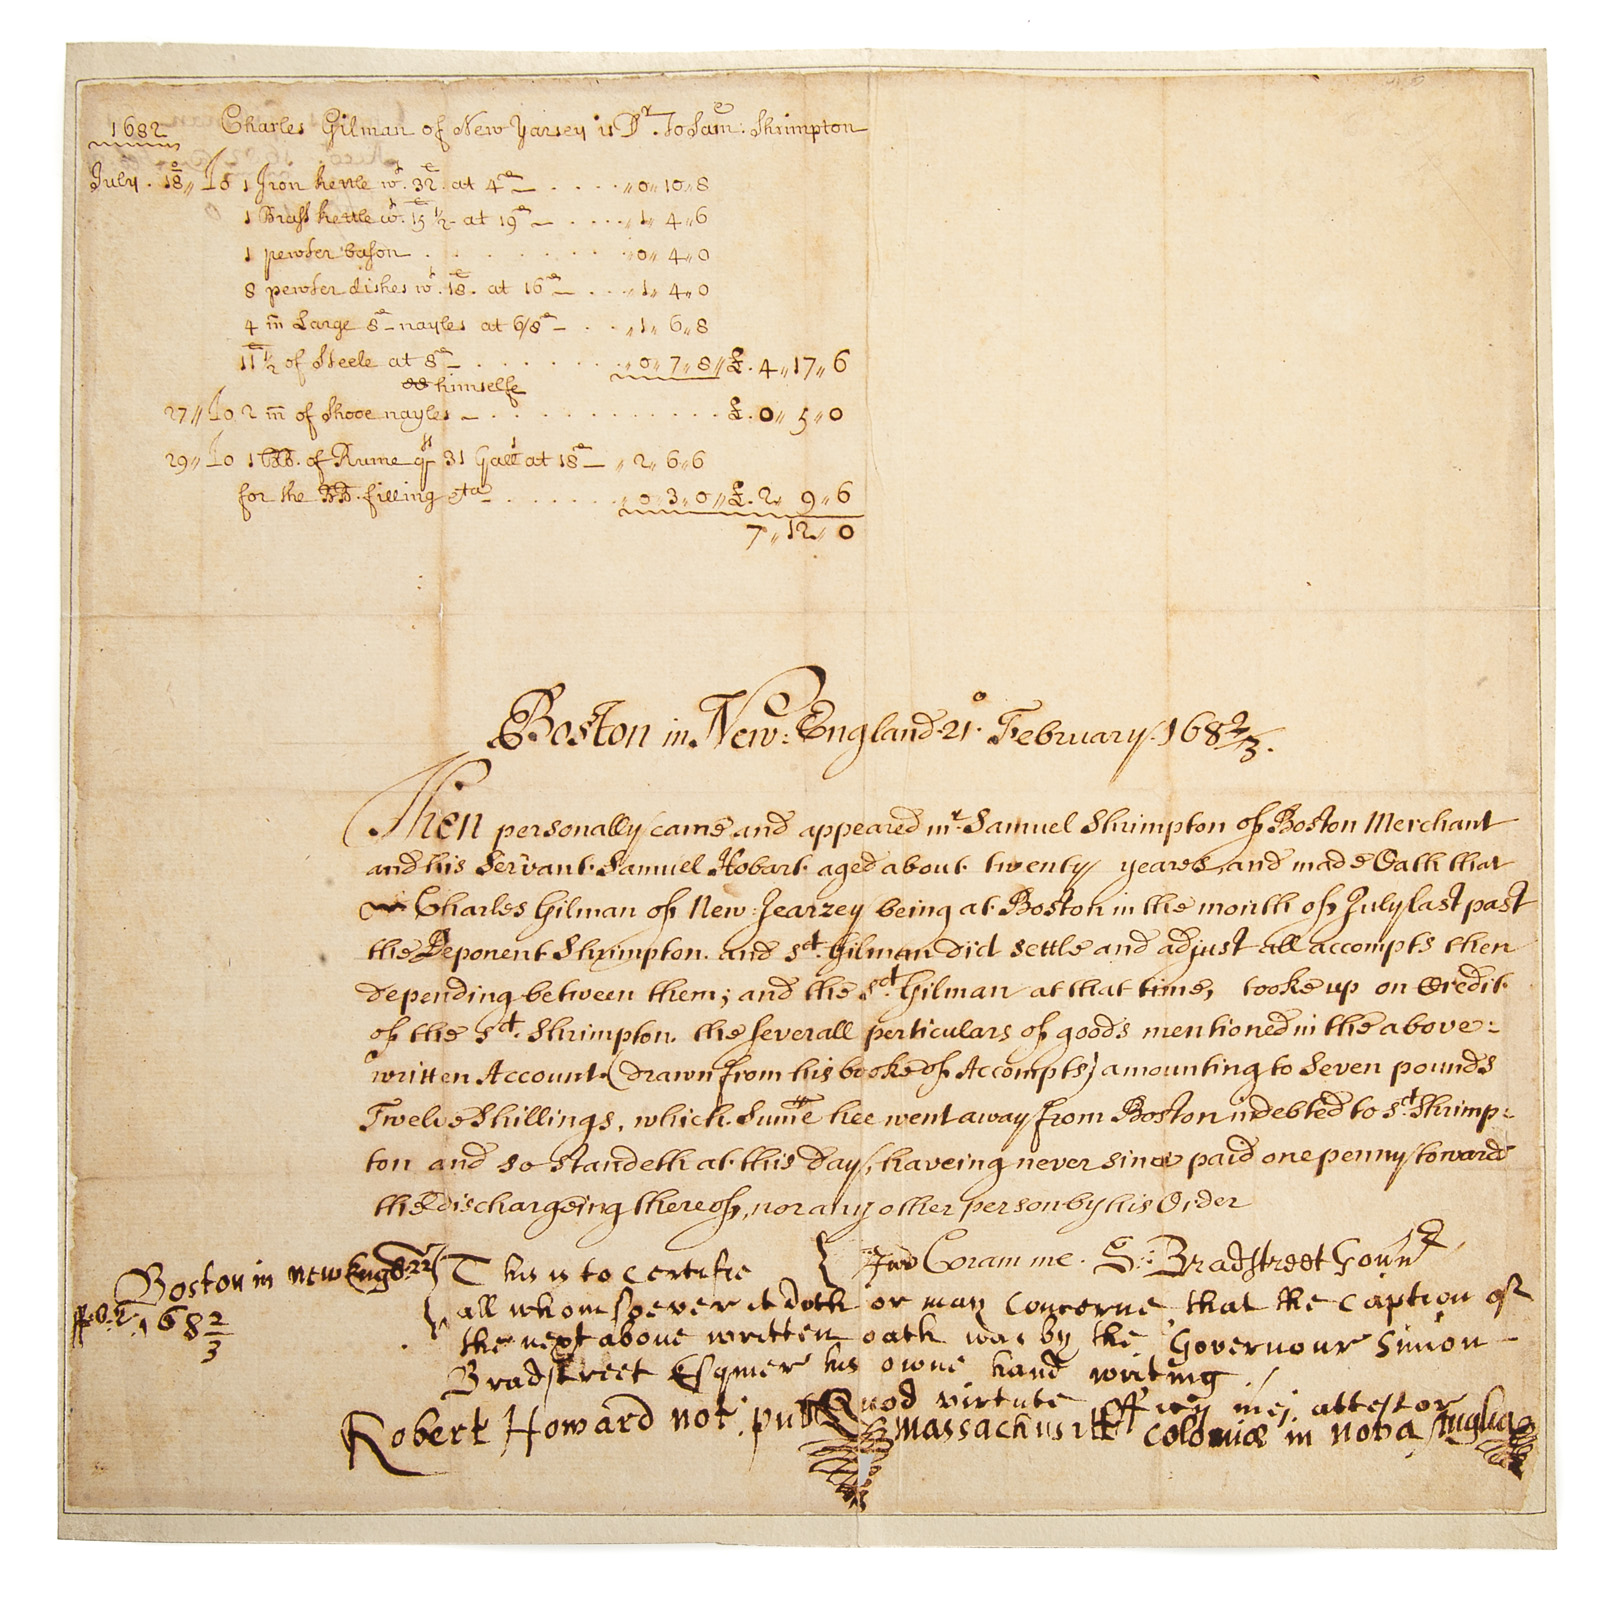 1682 Charles Gilman of New Yarsey is Dr. To Same: Shrimpton
July. 18 〃 To 1 Iron kettle wt. 32. at 4d — . . . . 〃0〃10〃8
1 Brass kettle wt. 15 1/2 at 19d — . . . 〃1〃4〃6
1 pewter bason . . . . . . . 〃0〃4〃0
8 pewter dishes wt. 18. at 16d — . . . 〃1〃4〃0
4 m Large 8d nayles at 6/8d — . . 〃1〃6〃8
11 1/2 of Steele at 8d — . . . . . . 〃0〃7〃8〃 £. 4〃17〃6
himselfe
27〃 To 2 m of Shooe nayles — . . . . . . . . . £. 0〃5〃0
29〃 To 1 of Rume qt 31 Galls at 18d — 〃2〃6〃6
for the filling &ta — . . . . . 〃0〃3〃0〃 £. 2〃9〃6
7〃12〃0
Boston in New: England. 21o. February. 1682/3.
Then personally came and appeared mr. Samuel Shrimpton of Boston Merchant
and his Servant Samuel Hobart aged about twenty yeares, and made Oath that
Charles Gilman of New: Jearzey being at Boston in the month of July last past
the Deponent Shrimpton. and sd. Gilman did settle and adjust all accompts then
depending between them; and the sd. Gilman at that time, tooke up on Credit
of the sd. Shrimpton. the severall perticulars of goods mentioned in the above:
written Account (drawn from his booke of Accompts) amounting to Seven pounds
Twelve Shillings, which Summe hee went away from Boston indebted to sd. Shrimp:
ton and so standeth at this day, haveing never since paid one penny towards
the dischargeing thereof, nor any other person by his Order
Jurd Coram me. S: Bradstreet Govnr
Boston in new Engd 22 } This is to certifie
ffeb. 1682/3 } all whomsoever it doth or may concerne that the caption of
the next above written oath was by the Governour Simon
Bradstreet Esquier his owne hand writing
Quod virtute officij mei attestor
Robert Howard not: pub Massachusitt Coloniæ in nova Anglia